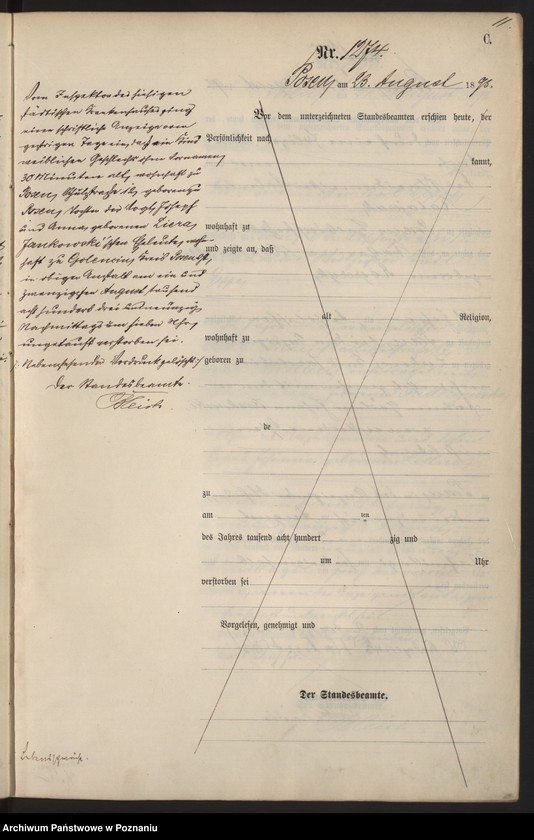 11.
C.
Nr. 1274.
Posen, am 23. August 1893.
Vom Inspektor des hiesigen
städtischen Krankenhauses ging
eine schriftliche Anzeige vom
gestrigen Tage ein, daß ein Kind
weiblichen Geschlechts ohne Vornamen,
30 Minuten alt, wohnhaft zu
Posen, geboren zu
Posen, Tochter der Vogt, Joseph
und Anna, geborenen
Jankowski'schen Eheleute, wohn-
haft zu Golencin, Kreis
in obiger Anstalt am ein und
zwanzigsten August tausend
acht hundert drei und neunzig
Nachmittags um sieben Uhr,
ungetauft verstorben sei.
Nebenstehender Vordruck gelöscht.
Der Standesbeamte.
Vor dem unterzeichneten Standesbeamten erschien heute, der
Persönlichkeit nach
kannt,
wohnhaft zu
und zeigte an, daß
alt Religion,
wohnhaft zu
geboren zu
de
zu
am ten
des Jahres tausend acht hundert zig und
um Uhr
verstorben sei
Vorgelesen, genehmigt und
Der Standesbeamte.
Lebensschwäche.
Archiwum Państwowe w Poznaniu